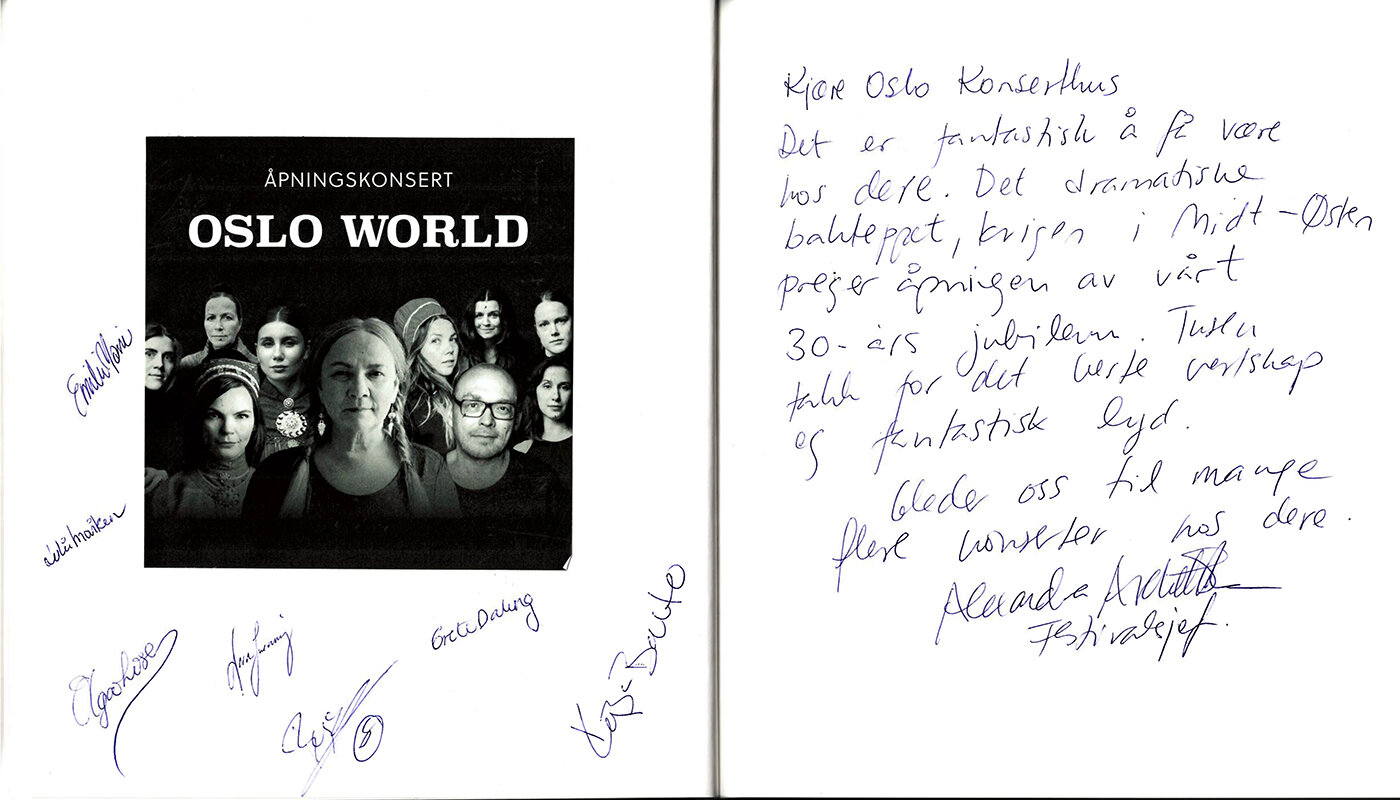 ÅPNINGSKONSERT
OSLO WORLD
Grete Daling
Kjære Oslo Konserthus
Det er fantastisk å få være
hos dere. Det dramatiske
bakteppet, krigen i Midt-Østen
preger åpningen av vårt
30-års jubileum. Tusen
takk for det beste vertskap
og fantastisk lyd.
Gleder oss til mange
flere konserter hos dere.
Alexandra
Festivalsjef.